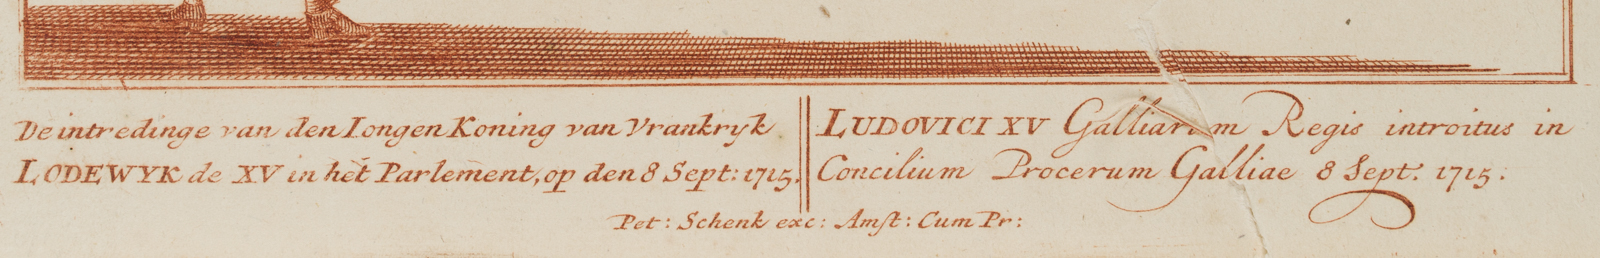 De intredinge van den Iongen Koning van Vrankryk
LODEWYK de XV in het Parlement, op den 8 Sept: 1715.
LUDOVICI XV Galliarum Regis introitus in
Concilium Procerum Galliae 8 Sept. 1715.
Pet: Schenk exc: Amst: Cum Pr: